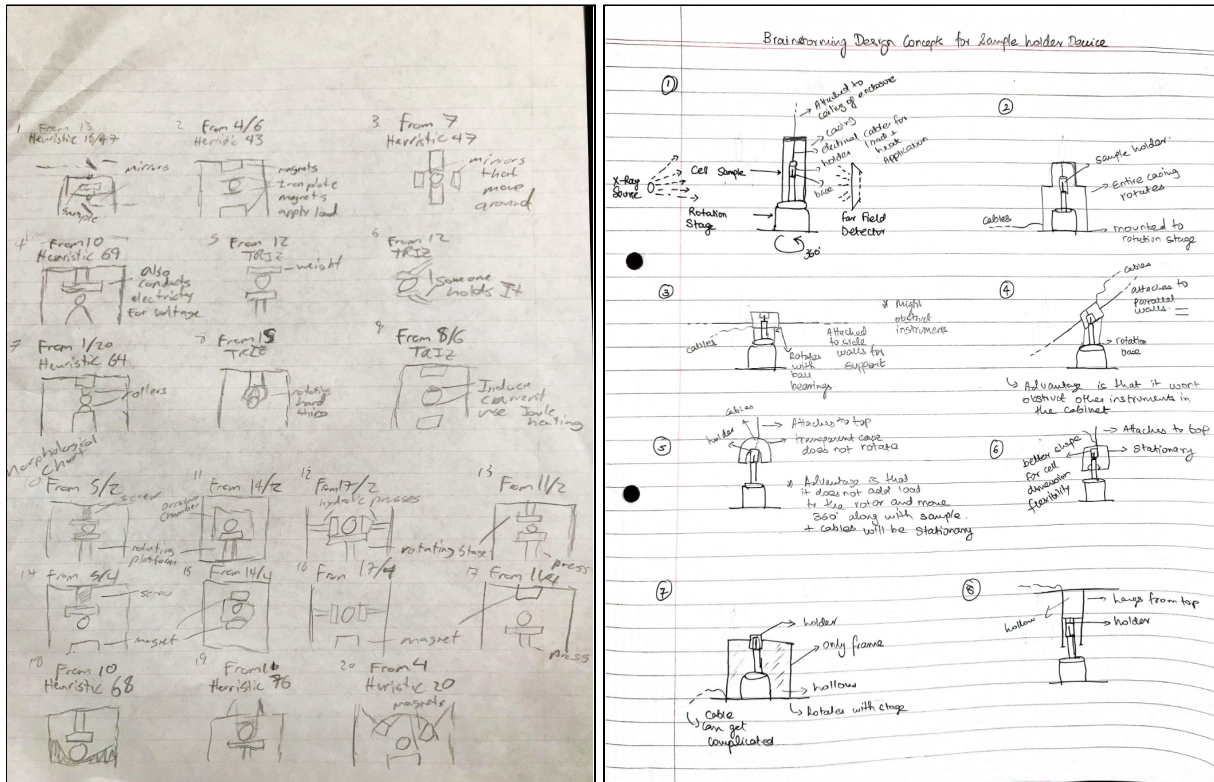 From
Heuristic
mirrors
sample
2 From 4/6
Heuristic 43
magnets
Iron plate
magnets
apply load
3 From 7
Heuristic 47
mirrors
that
move
around
4 From 10
Heuristic 69
also
conducts
electricity
for voltage
5 From 12
TRIZ
weight
6 From 12
TRIZ
Someone
holds It
From 1/20
Heuristic 64
rollers
8 From 15
TRIZ
rotating
9 From 8/6
TRIZ
Induce
current
use Joule
heating
Morphological
Chart
From 5/2
screw
rotating
platform
11 From 14/2
chamber
12 From 17/2
presses
rotating stage
13 From 11/2
press
14 From 5/4
screw
magnet
15 From 14/4
16 From 17/4
magnet
17 From 11/4
press
18 From 10
Heuristic 68
19 From
Heuristic 76
20 From 4
Heuristic 20
magnets
Brainstorming Design Concepts for Sample holder Device
①
Attached to
ceiling of enclosure
casing
electrical cable for
load +
heat
Application
holder
base
X-Ray
Source
Cell Sample
Rotation
Stage
Far Field
Detector
360°
②
sample holder
Entire casing
rotates
cables
mounted to
rotation stage
③
cables
Rotates
with
ball
bearings.
Attached
to side
walls for
support
* Might
obstruct
instruments
④
cables
attaches to
parallel
walls
rotation
base
↳ Advantage is that it wont
obstruct other instruments in
the cabinet.
⑤
cables
holder
Attaches to top
transparent case
does not rotate
* Advantage is that
it does not add load
to the rotor and move
360° along with sample.
+ cables will be stationary
⑥
better shape
for cell
dimension
flexibility
Attaches to top
Stationary
⑦
holder
only frame
hollow
Rotates with stage
Cable
can get
complicated
⑧
hollow
hangs from top
holder